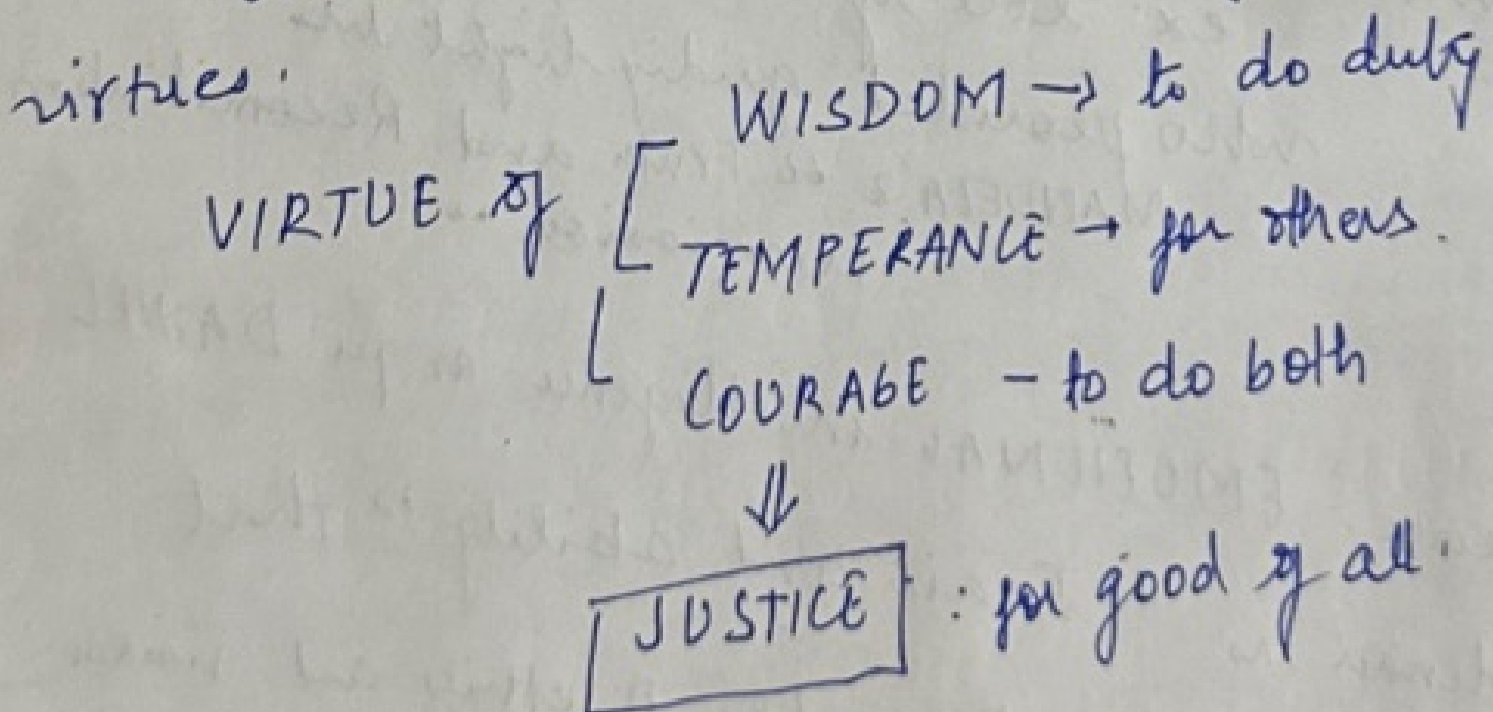 virtues.
WISDOM → to do duty
VIRTUE of
TEMPERANCE → for others.
COURAGE - to do both
⇓
JUSTICE : for good of all.